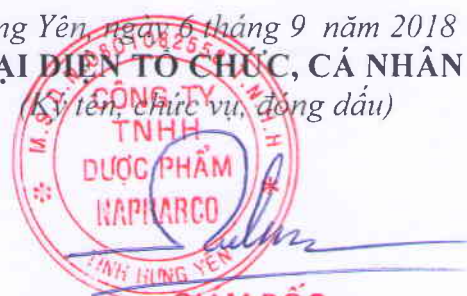 ng Yên, ngày 6 tháng 9 năm 2018
ẠI DIỆN TỔ CHỨC, CÁ NHÂN
(Ký tên, chức vụ, đóng dấu)
CÔNG TY
TNHH
DƯỢC PHẨM
NAPHARCO
TỈNH HƯNG YÊN